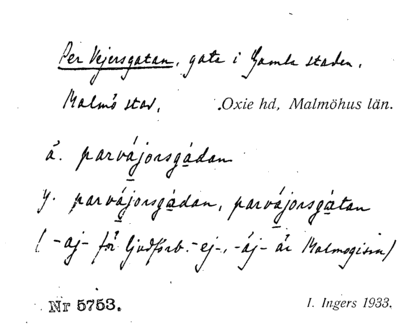 Per Vejersgatan, gata i Gamla staden,
Malmö stad, Oxie hd, Malmöhus län.
ä. parvájorsgádan
y. parvájorsgádan, parvájorsgatan
(-aj- för ljudförb. -ej-, -áj- är Malmögism)
Nr 5753. I. Ingers 1933.